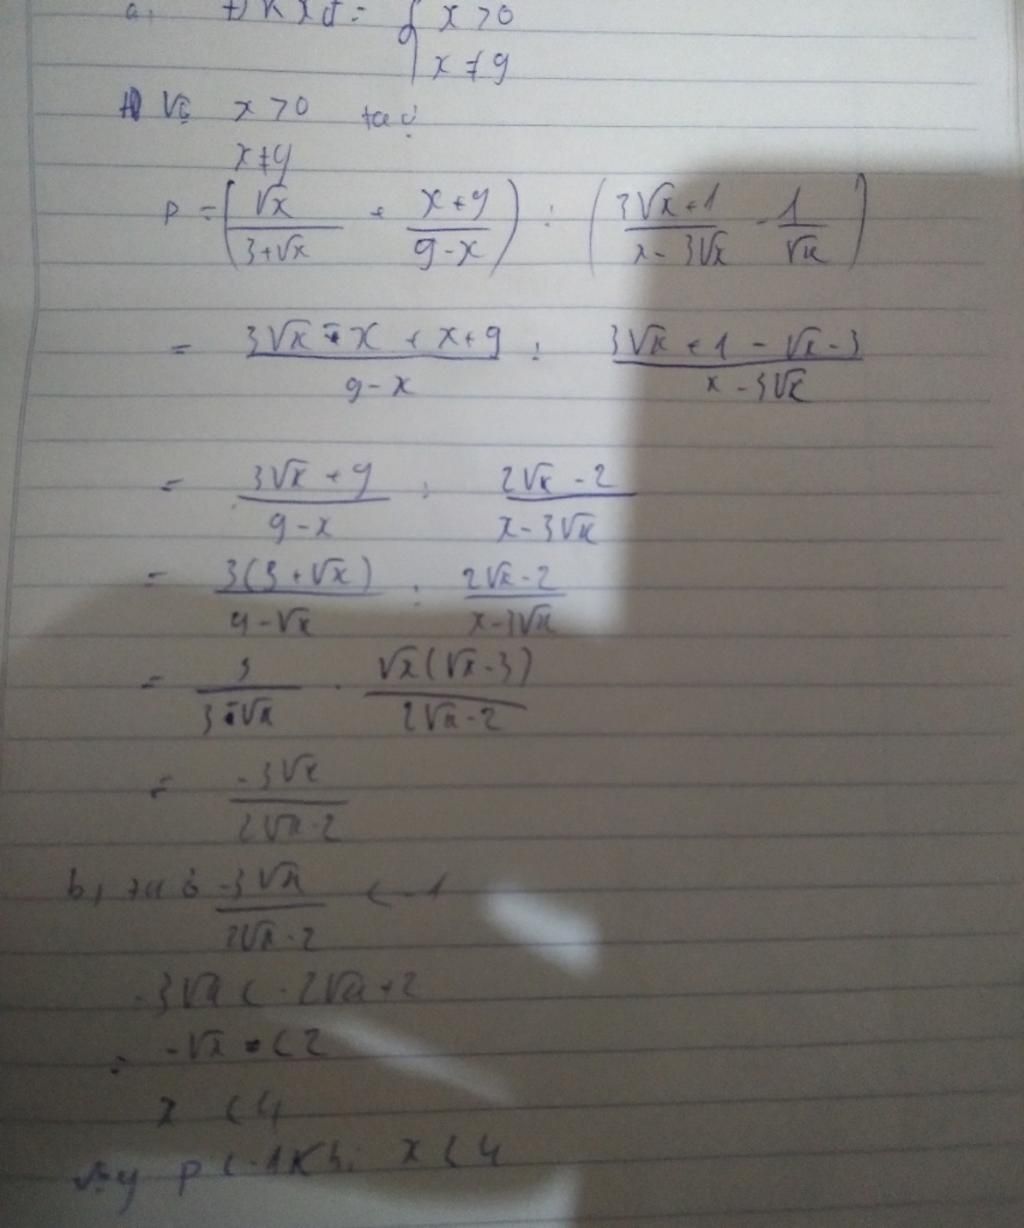 a, ĐKXĐ: { x > 0
x ≠ 9
Với x > 0 ta có
x ≠ 9
P = ( √x / (3+√x) + (x+9) / (9-x) ) : ( (3√x+1) / (x-3√x) - 1 / √x )
= (3√x - x + x+9) / (9-x) : (3√x + 1 - √x - 3) / (x-3√x)
= (3√x + 9) / (9-x) : (2√x - 2) / (x-3√x)
= 3(3+√x) / (9-√x) : (2√x-2) / (x-3√x)
= 3 / (3-√x) . √x(√x-3) / (2√x-2)
= -3√x / (2√x-2)
b, ta có -3√x / (2√x-2) < -1
-3√x < -2√x+2
= -√x < 2
x < 4
Vậy P < -1 khi x < 4